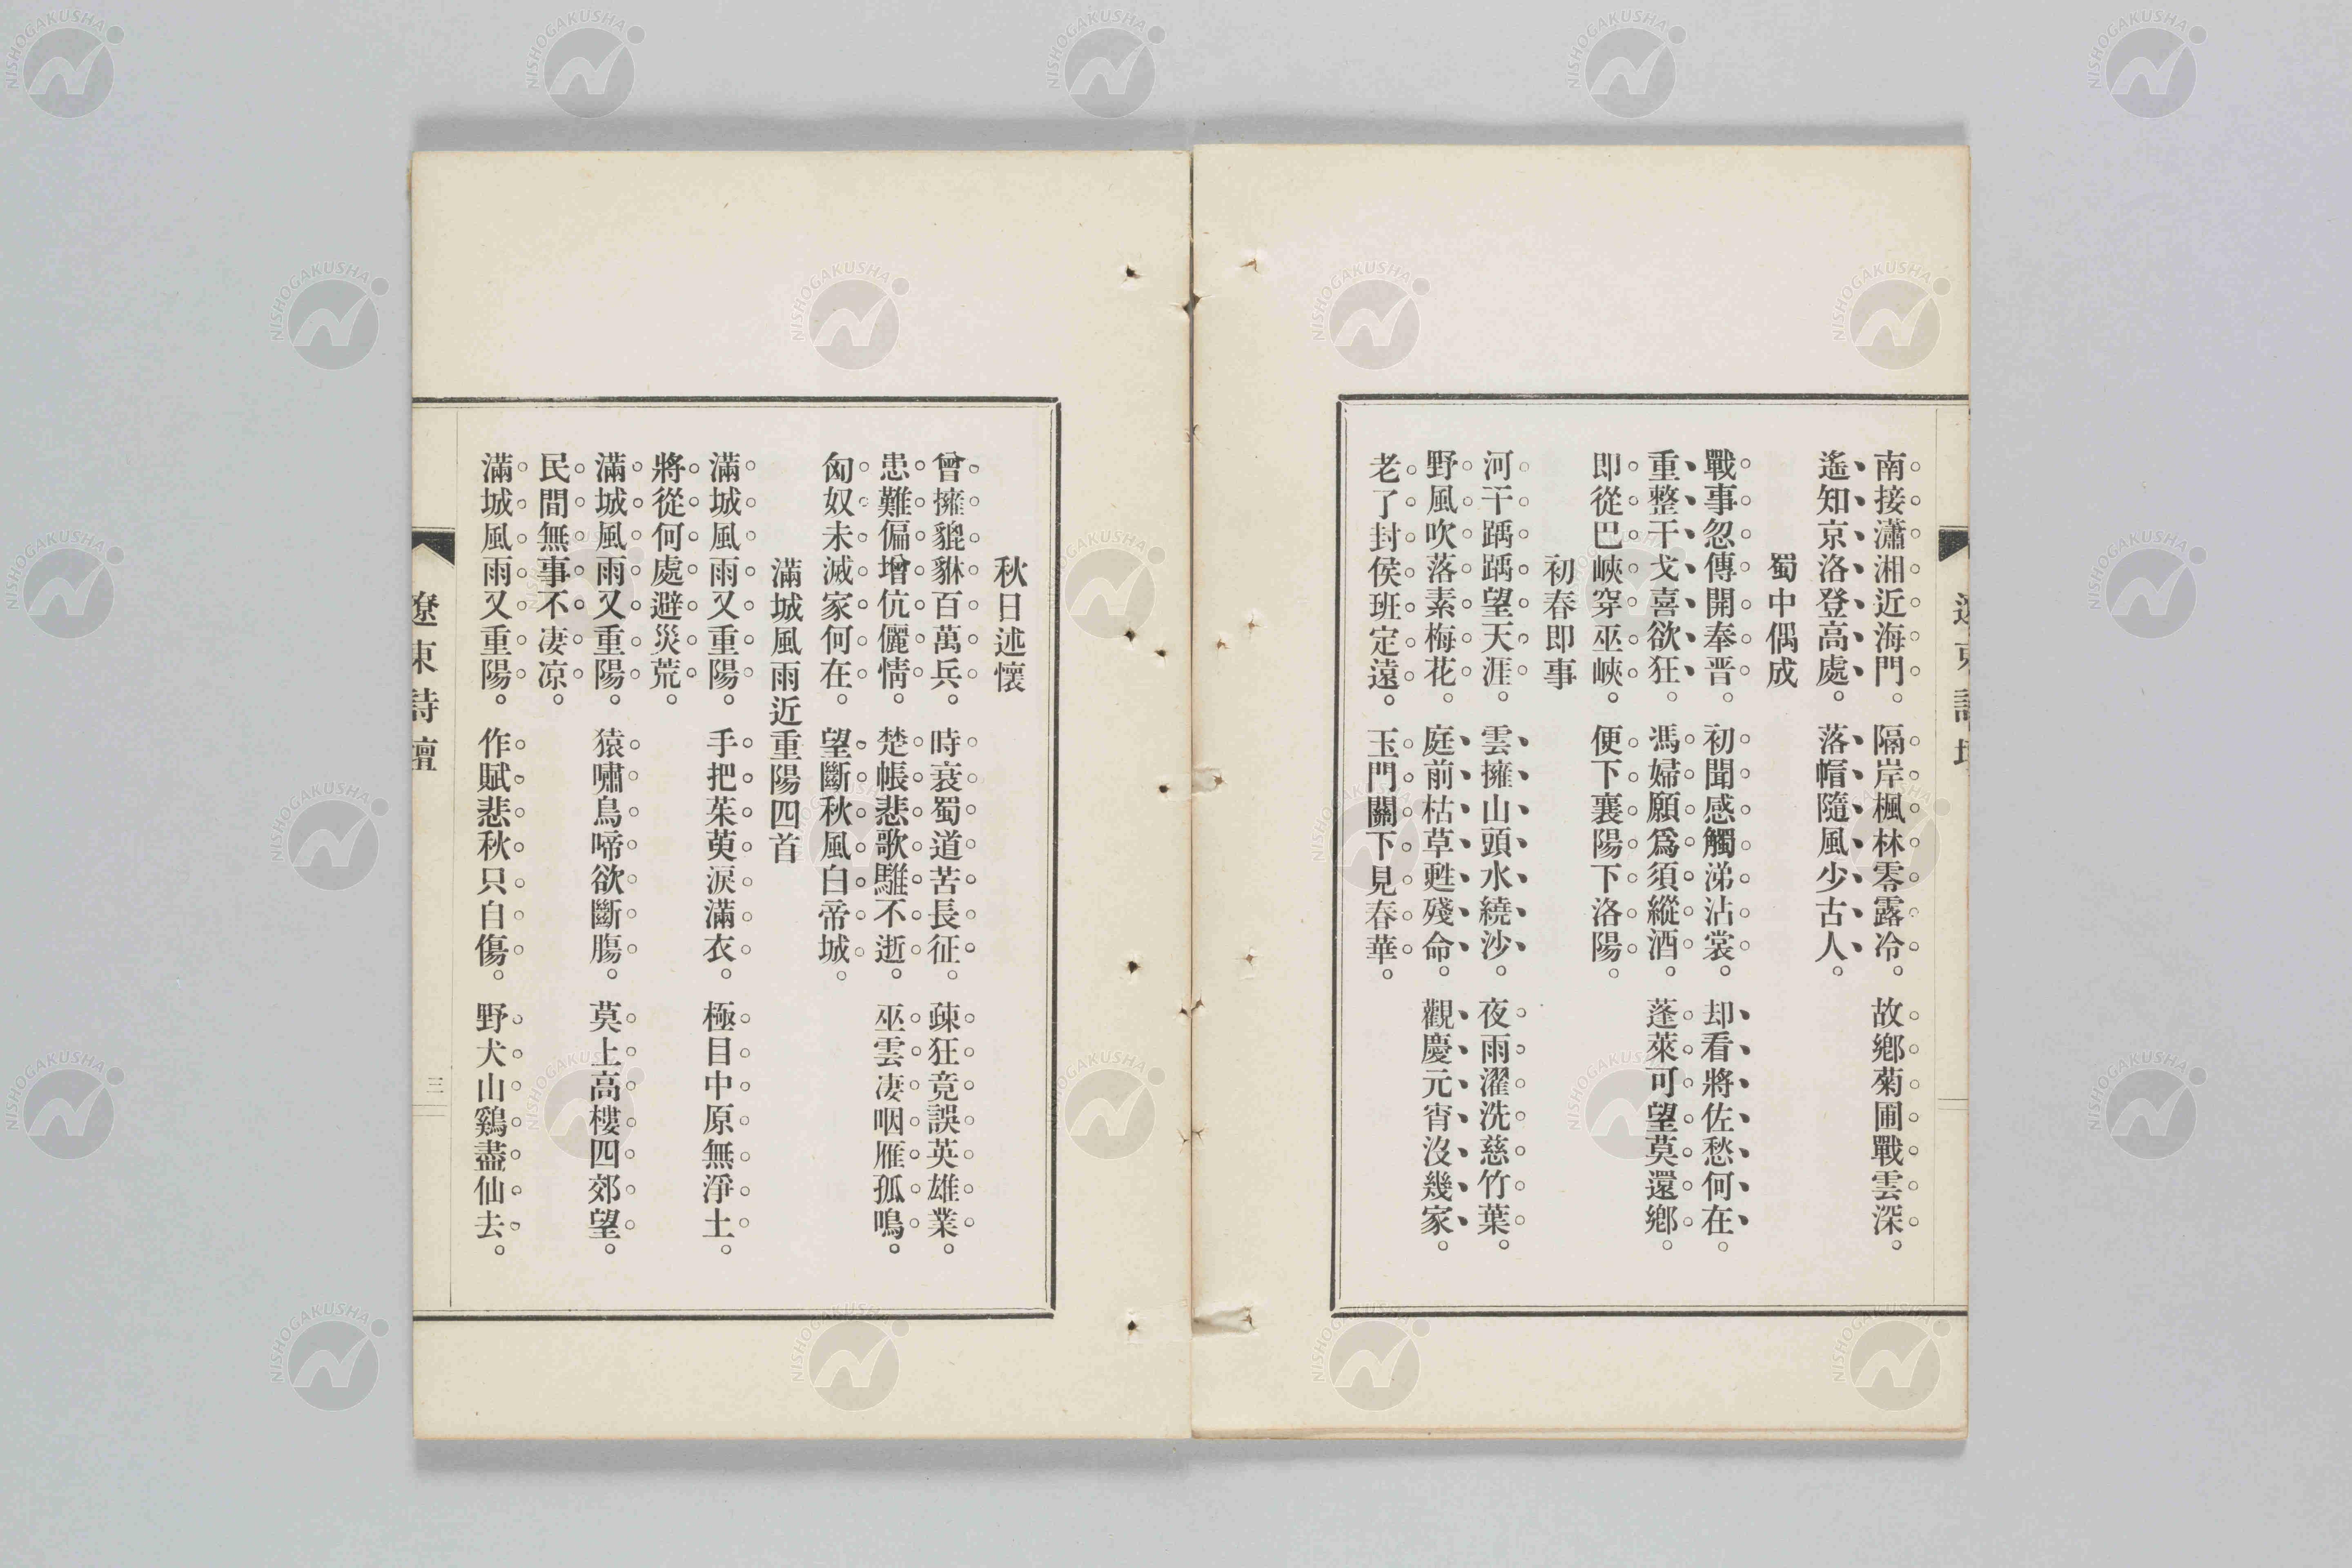 南接瀟湘近海門。隔岸楓林零露冷。故鄉菊圃戰雲深。
遙知京洛登高處。落帽隨風少古人。
蜀中偶成
戰事忽傳開奉晋。初聞感觸涕沾裳。却看將佐愁何在。
重整干戈喜欲狂。馮婦願爲須縱酒。蓬萊可望莫還鄉。
即從巴峽穿巫峽。便下襄陽下洛陽。
初春即事
河干踽踽望天涯。雲擁山頭水繞沙。夜雨濯洗慈竹葉。
野風吹落素梅花。庭前枯草甦殘命。觀慶元宵沒幾家。
老了封侯班定遠。玉門關下見春華。
秋日述懷
曾擁貔貅百萬兵。時衰蜀道苦長征。疎狂竟誤英雄業。
患難偏增伉儷情。楚帳悲歌騅不逝。巫雲凄咽雁孤鳴。
匈奴未滅家何在。望斷秋風白帝城。
滿城風雨近重陽四首
滿城風雨又重陽。手把茱萸淚滿衣。極目中原無淨土。
將從何處避災荒。
滿城風雨又重陽。猿嘯鳥啼欲斷膓。莫上高樓四郊望。
民間無事不凄凉。
滿城風雨又重陽。作賦悲秋只自傷。野犬山鷄盡仙去。
遼東詩壇
三
NISHOGAKUSHA